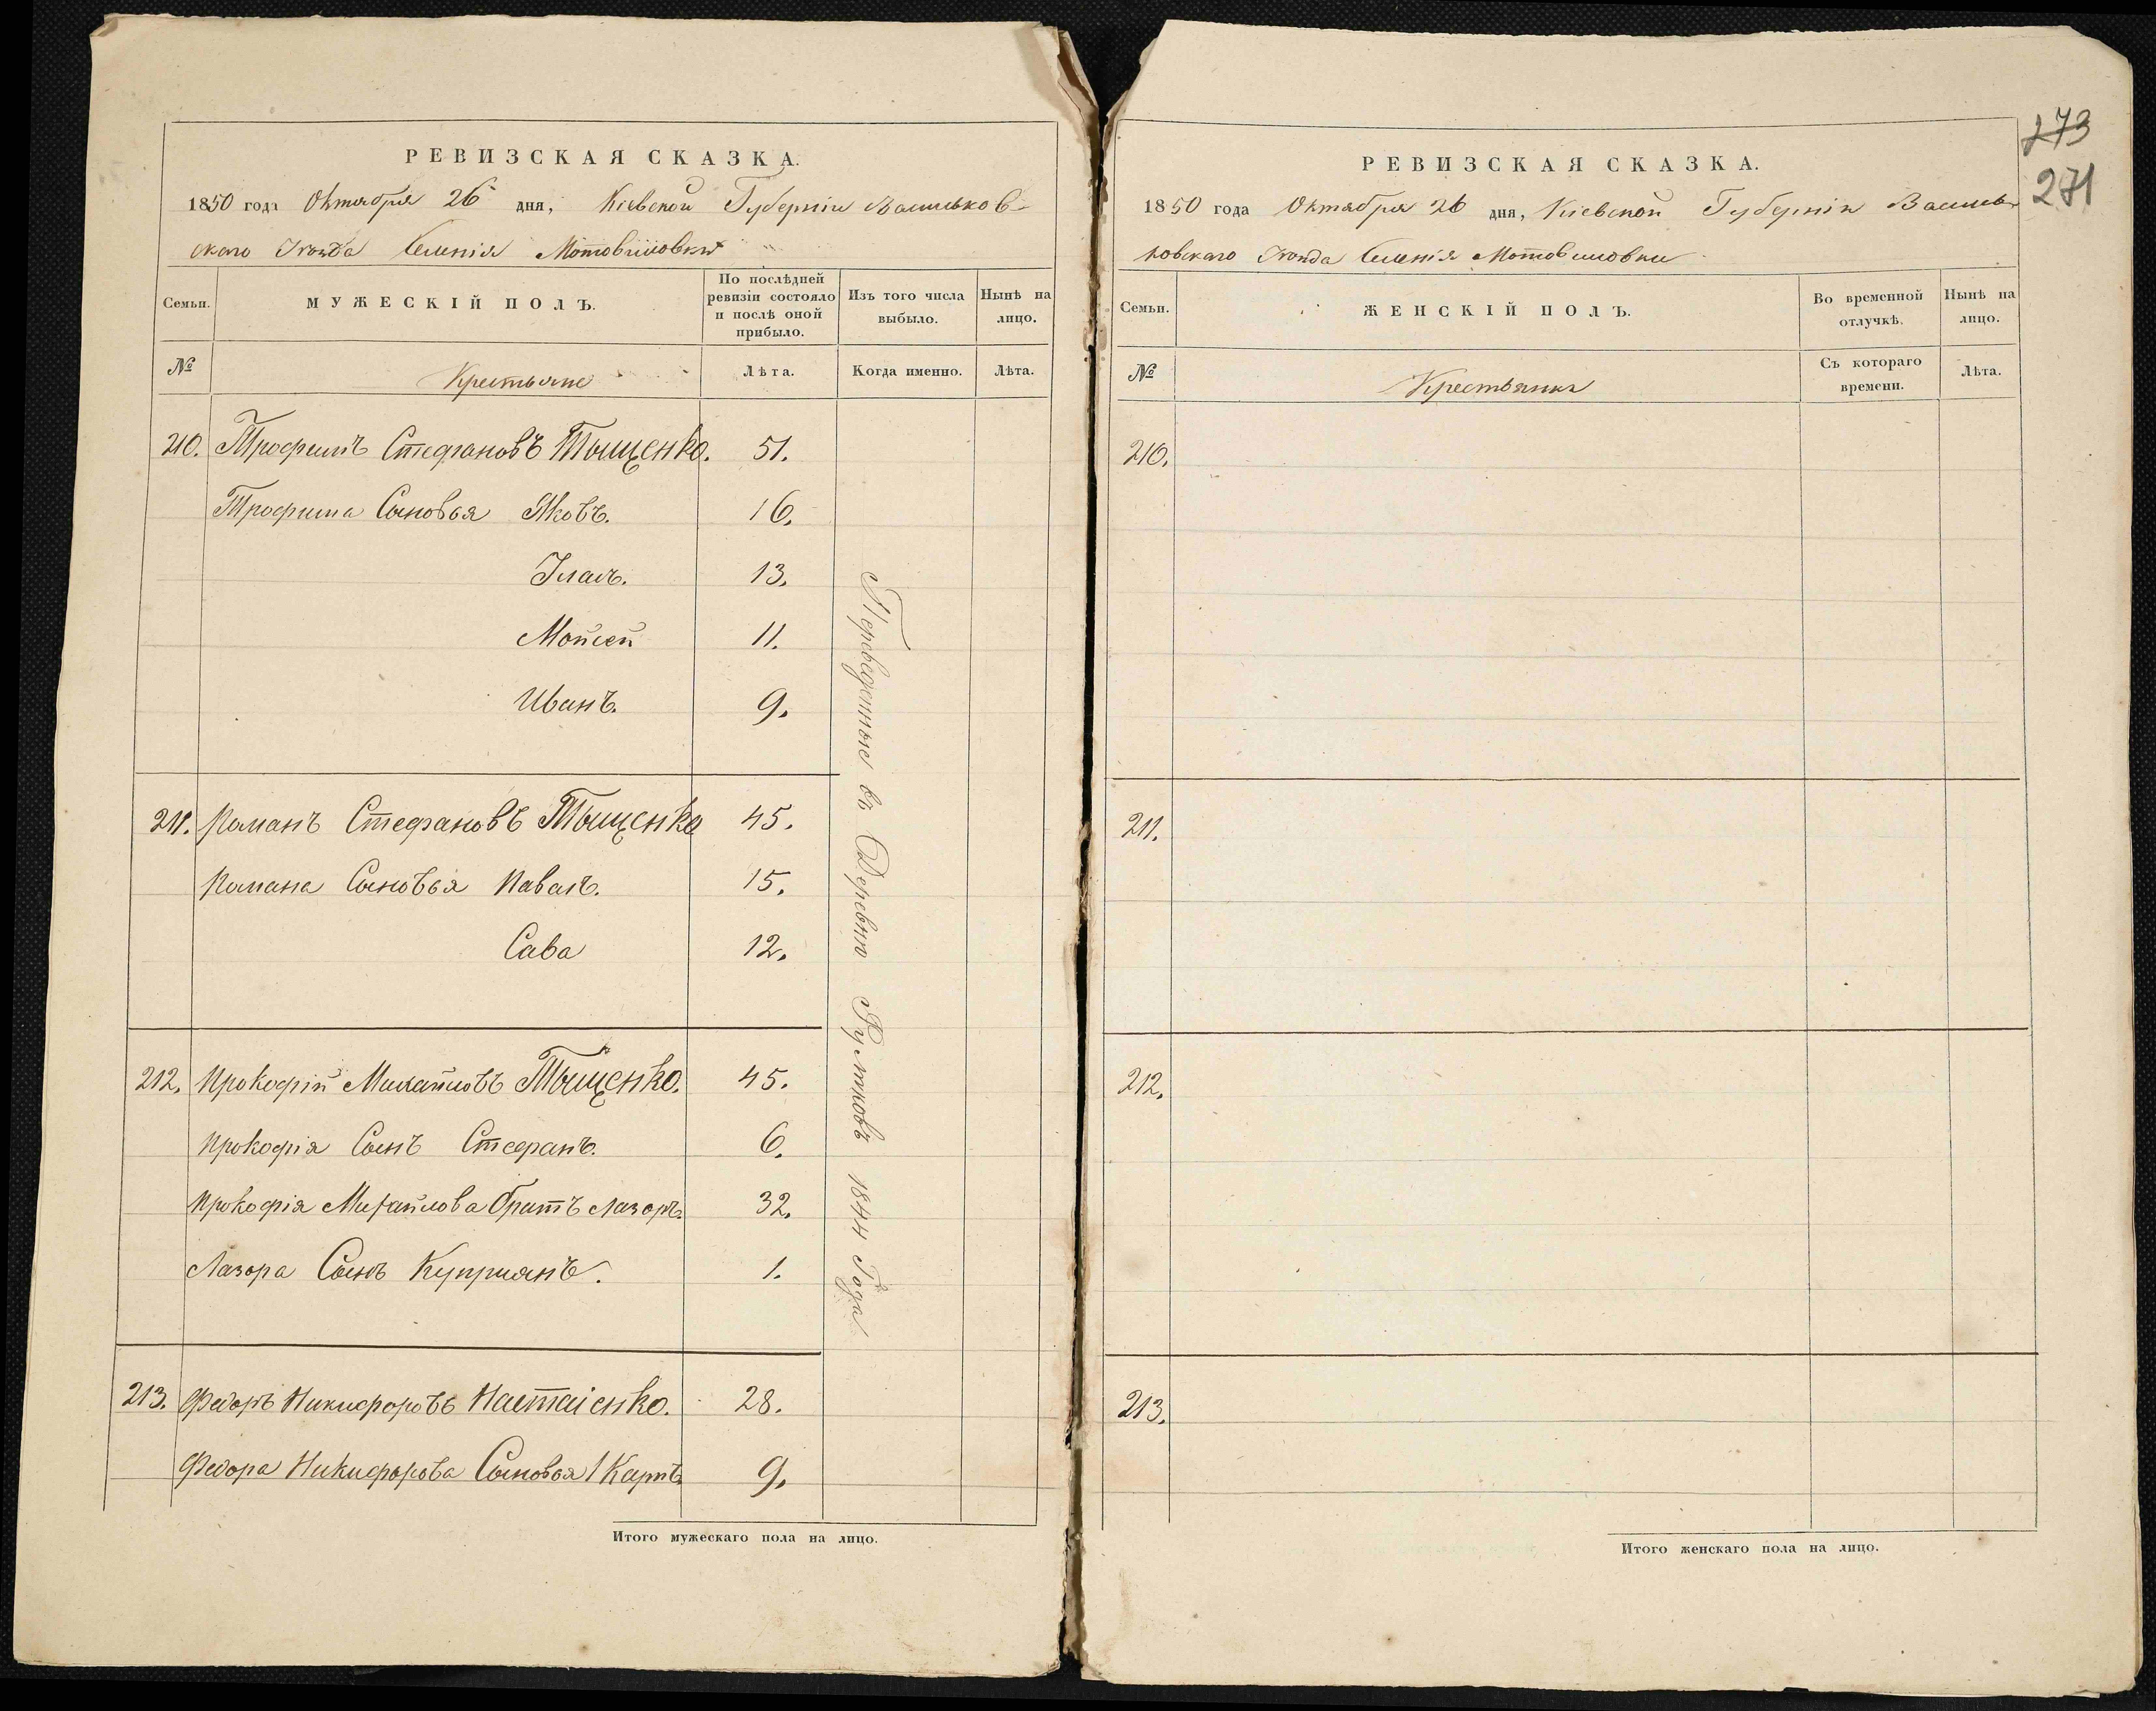 РЕВИЗСКАЯ СКАЗКА.
1850 года Октября 26 дня, Кіевской Губерніи Васильков-
скаго Уѣзда Селенія Мотовиловки
Семьи.
МУЖЕСКІЙ ПОЛЪ.
По послѣдней ревизіи состояло и послѣ оной прибыло.
Изъ того числа выбыло.
Нынѣ на лицо.
№
Крестьяне
Лѣта.
Когда именно.
Лѣта.
210. Трофимъ Стефановъ Тыщенко. 51.
Трофима Сыновья Яковъ. 16.
13.
Мойсей 11.
Иванъ. 9.
211. Романъ Стефановъ Тыщенко 45.
Романа Сыновья 15.
Сава 12.
212. Прокофій Михайловъ Тыщенко. 45.
Прокофія Сынъ Стефанъ. 6.
Прокофія Михайлова братъ Лазоръ. 32.
Лазора Сынъ Куприянъ. 1.
213. Федоръ Никифоровъ Настаіенко. 28.
Федора Никифорова Сыновья 1 Карпъ 9.
Переведенные въ Деревню 1844 Года
Итого мужескаго пола на лицо.
273
271
РЕВИЗСКАЯ СКАЗКА.
1850 года Октября 26 дня, Кіевской Губерніи Василь-
ковскаго Уѣзда Селенія Мотовиловки
Семьи.
ЖЕНСКІЙ ПОЛЪ.
Во временной отлучкѣ.
Нынѣ на лицо.
№
Крестьянки
Съ котораго времени.
Лѣта.
210.
211.
212.
213.
Итого женскаго пола на лицо.